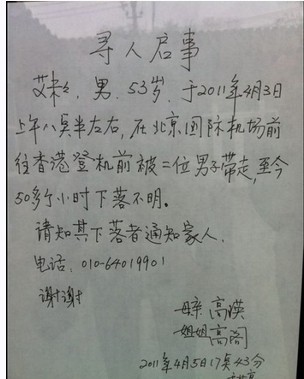 寻人启事
艾未未，男，53岁，于2011年4月3日
上午八点半左右，在北京国际机场前
往香港登机前被二位男子带走，至今
50多个小时下落不明。
请知其下落者通知家人.
电话：010-64019901
谢谢
母亲 高瑛
姐姐 高阁
2011年4月5日17点43分